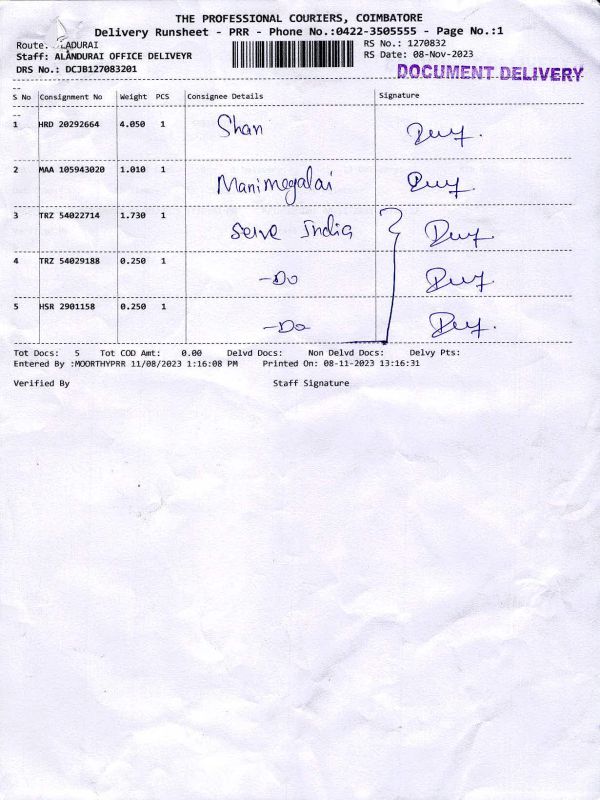 THE PROFESSIONAL COURIERS, COIMBATORE
Delivery Runsheet - PRR - Phone No.:0422-3505555 - Page No.:1
Route. LADURAI
RS No.: 1270832
Staff: ALANDURAI OFFICE DELIVEYR
RS Date: 08-Nov-2023
DRS No.: DCJB127083201
DOCUMENT DELIVERY
S No Consignment No Weight PCS Consignee Details Signature
1 HRD 20292664 4.050 1 Shan
2 MAA 105943020 1.010 1 Manimegalai
3 TRZ 54022714 1.730 1 Serve India
4 TRZ 54029188 0.250 1 -Do
5 HSR 2901158 0.250 1 -Do
Tot Docs: 5 Tot COD Amt: 0.00 Delvd Docs: Non Delvd Docs: Delvy Pts:
Entered By :MOORTHYPRR 11/08/2023 1:16:08 PM Printed On: 08-11-2023 13:16:31
Verified By Staff Signature